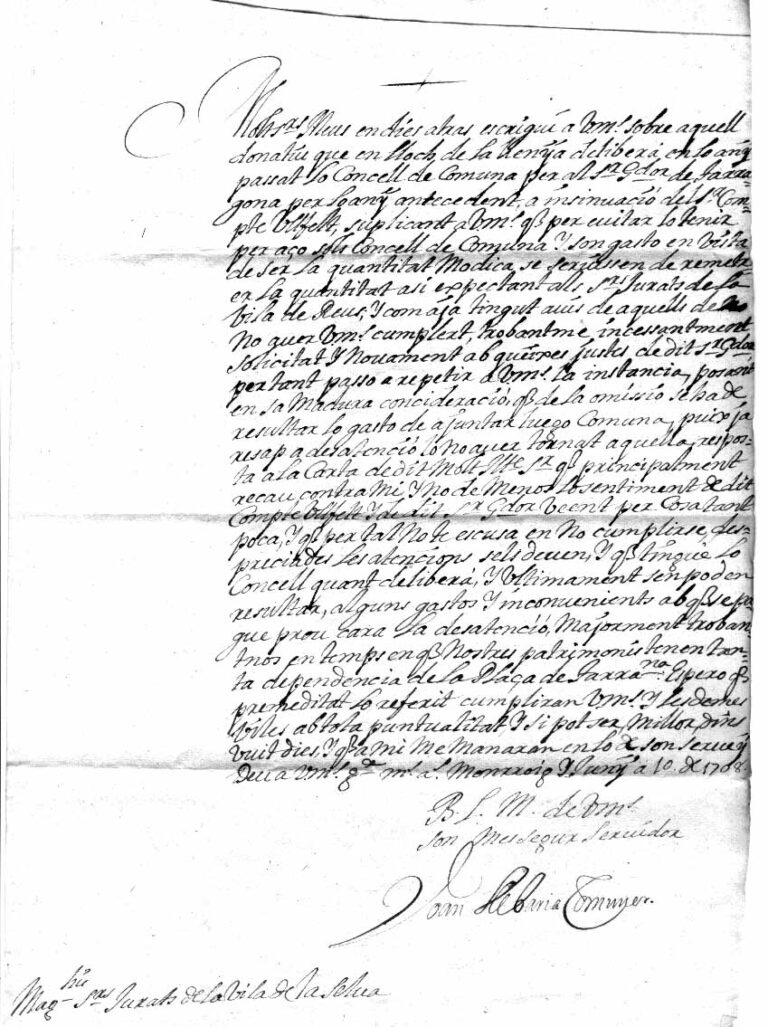 Molt Srs Meus en dies atras escrigui a Vms. sobre aquell
donatiu que en lloch de la llenya deliberá en lo añy
passat lo Concell de Comuna per al Sr. Gdor de Tarra-
gona per lo añy antecedent, a insinuació del Sr. Com-
pte Ullfelt, suplicant a Vms. q̃ per evitar lo tenir
per aço sols Concell de Comuna Y son gasto en vista
de ser la quantitat Modica, se servissen de remetr-
er la quantitat asi expectant als Srs Jurats de la
vila de Reus, Y com aja tingut avis de aquells de
No aver Vms. cumplert, trobantme incessantment
solicitat Y Novament ab queixes justes de dit Sr Gdor
per tant passo a repetir a Vms. la instancia, posant
en sa Madura concideració, q̃ de la omissió se ha de
resultar lo gasto de ajuntar luego Comuna, puix ja
resap a desatenció lo no aver tornat aquella respos-
ta a la Carta de dit Molt Illtre Sr q̃ principalment
recau contra Mi, Y No de Menos lo sentiment de dit
Compte Ullfelt Y de dit Sr Gdor veent per Cosa tant
poca, Y q̃ per tal No te escusa en No cumplirse, des-
preciades les atencions sels deven, Y q̃ tingué lo
Concell quant deliberá, Y Ultimament sen poden
resultar, alguns gastos Y inconvenients ab q̃ se pa-
gue prou cara la desatenció, Majorment troban-
tnos en temps en q̃ Nostres patrimonis tenen tan-
ta dependencia de la Plaça de Tarrana. Espero q̃
premeditat lo referit cumpliran Vms. Y les demes
viles ab tota puntualitat, Y si pot ser, Millor, dins
vuit dies, Y q̃ a mi Me Manaran en lo de son servey
Deu a Vms. gde ms. as. Monrroig Y Juny a 10. de 1708
B. L. M. de Vms.
son Mes segur servidor
Joan
Maghs Srs Jurats de la Vila de la Selva